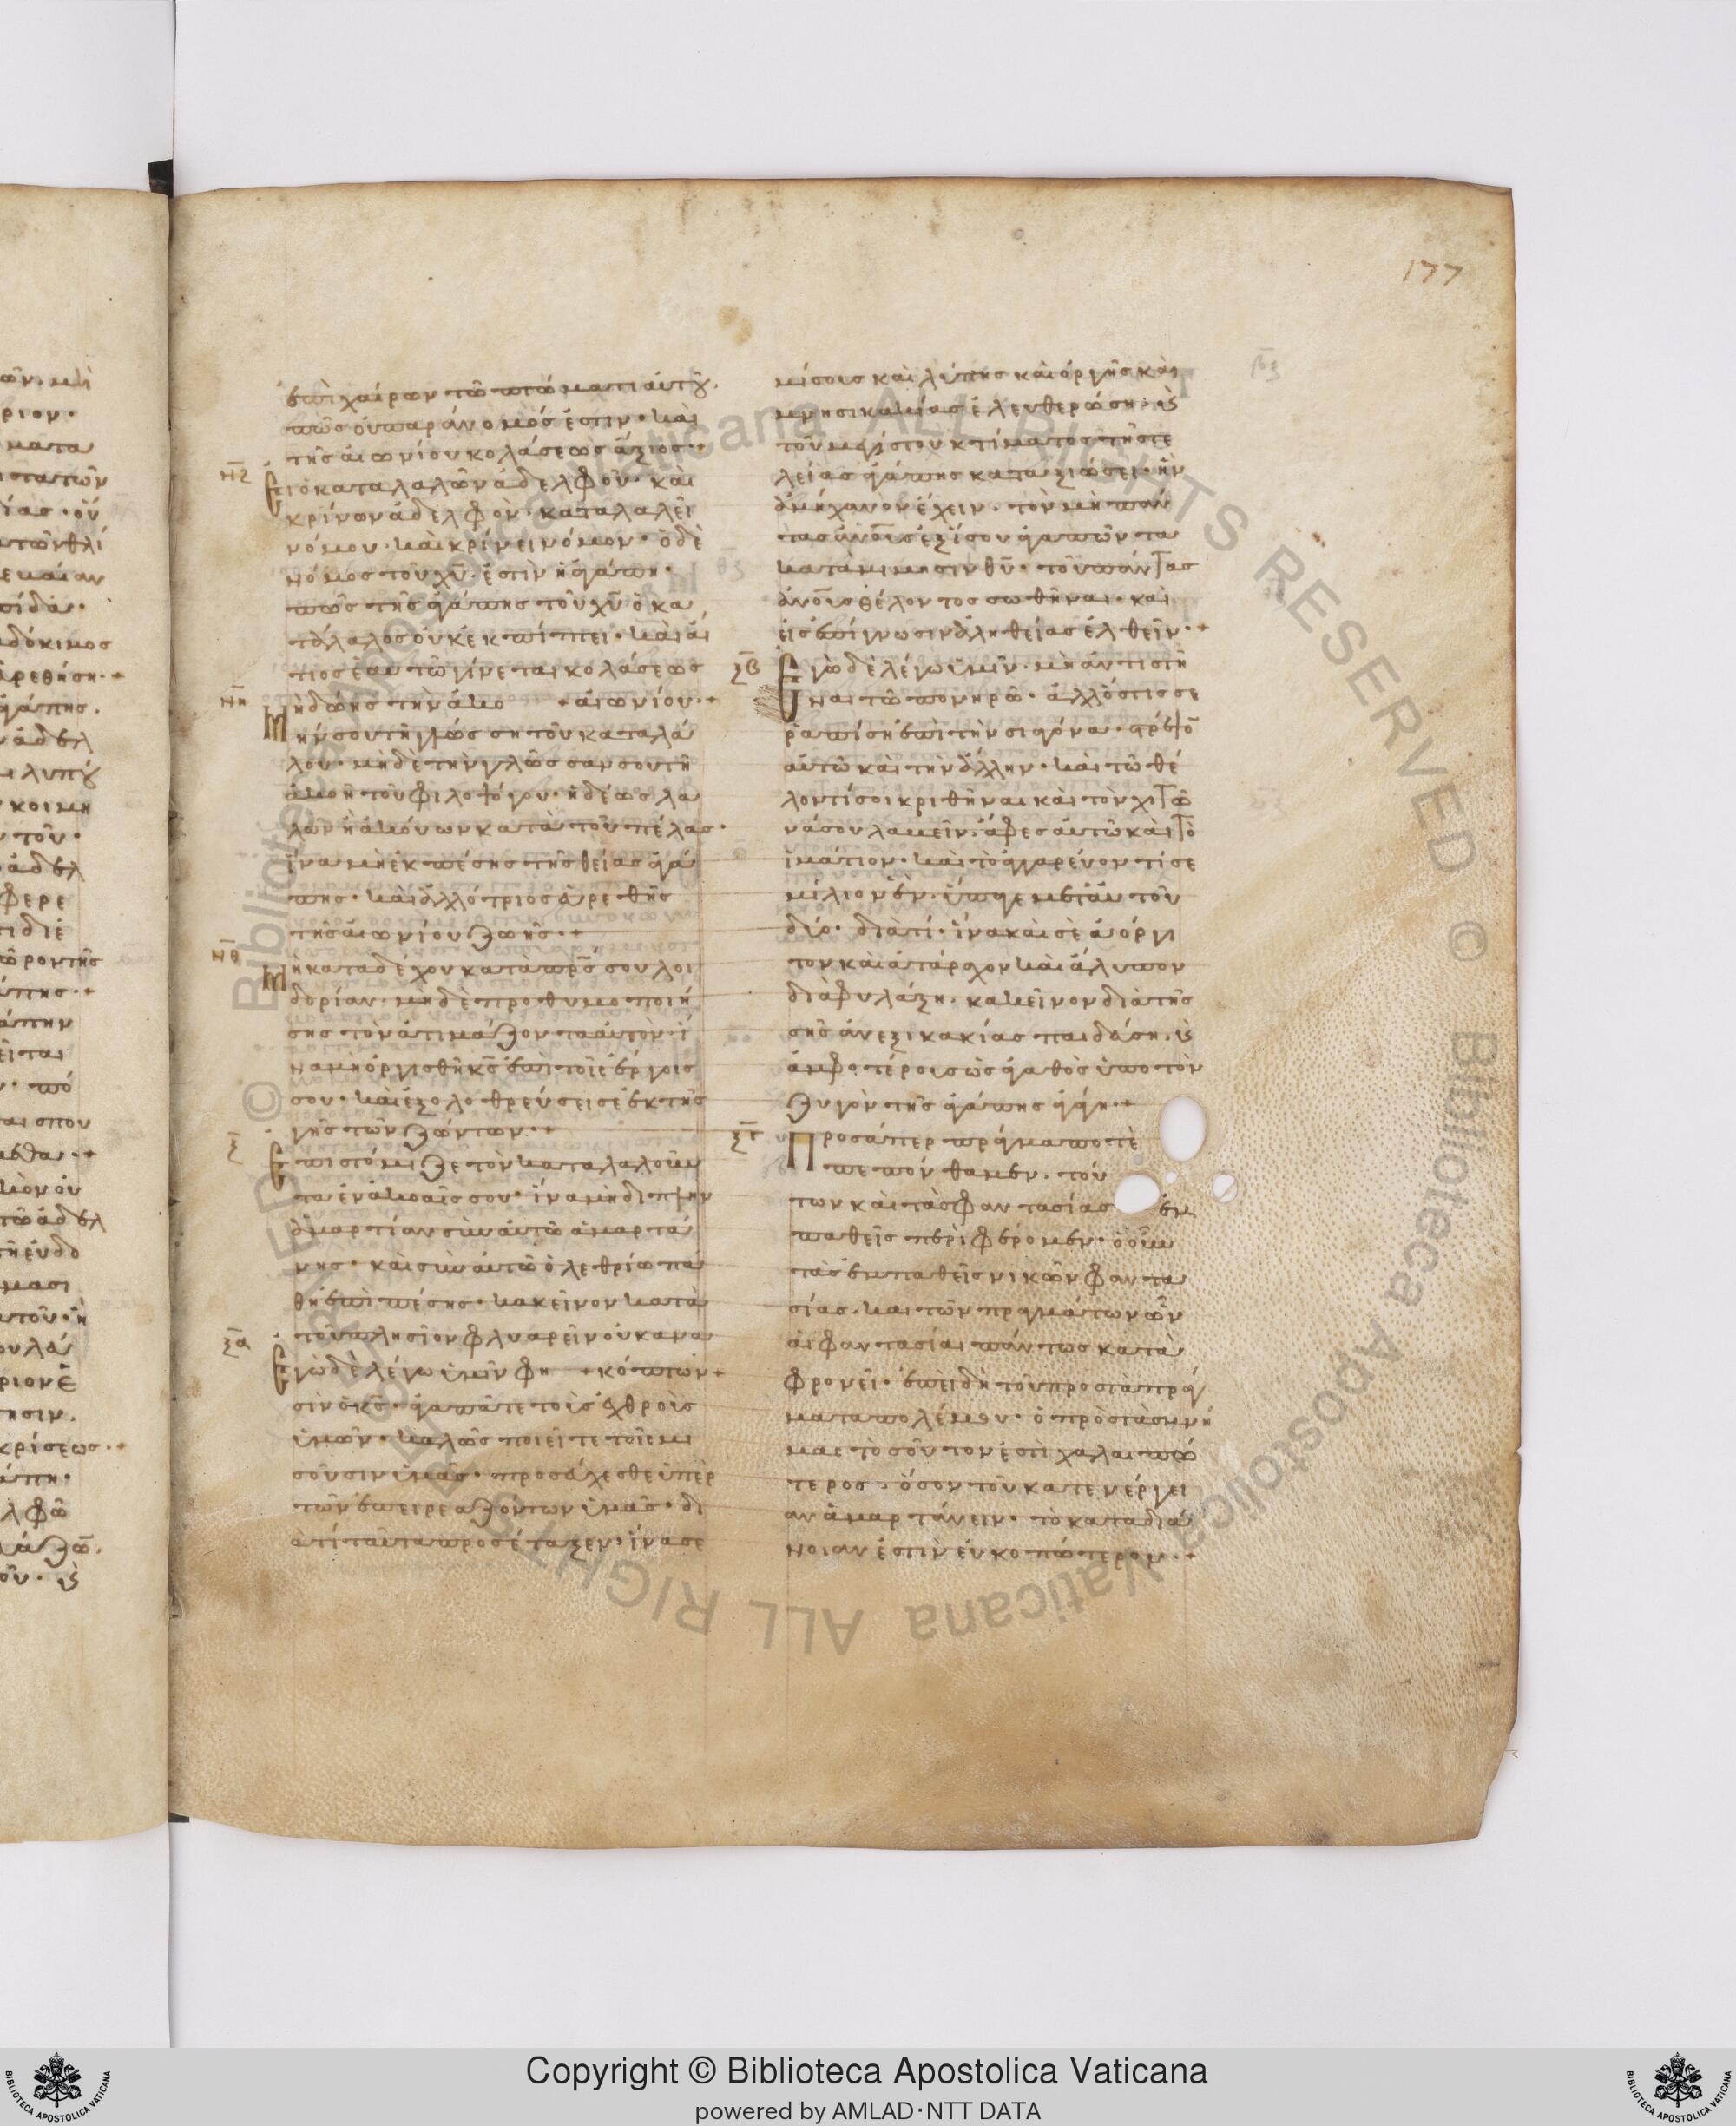 177
ἐπιχαίρων τῶ πτώματι αὐτοῦ.
πῶς οὐ παράνομός ἐστιν· καὶ
τῆς αἰωνίου κολάσεως ἄξιος·+
ΝΖ Εἰ ὁ καταλαλῶν ἀδελφοῦ· καὶ
κρίνων ἀδελφὸν· καταλαλεῖ
νόμου· καὶ κρίνει νόμον· ὁ δὲ
νόμος τοῦ χυ̅ ἐστὶν ἡ ἀγάπη·
πῶς τῆς ἀγάπης τοῦ χυ̅ ὁ κα
τάλαλος οὐκ ἐκπίπτει· καὶ αἴ
τιος ἑαυτῶ γίνεται κολάσεως
ΝΗ Μὴ δώης τὴν ἀκο +αἰωνίου·+
ήν σου τῆ γλώσση τοῦ καταλά
λου· μηδὲ τὴν γλῶσσαν σου τῆ
ἀκοῆ τοῦ φιλοψόγου· ἡδέως λα
λῶν ἢ ἀκούων κατὰ τοῦ πέλας·
ἵνα μὴ ἐκπέσης τῆς θείας ἀγά
πης· καὶ ἀλλότριος εὑρεθῆς
τῆς αἰωνίου ζωῆς·+
ΝΘ Μὴ καταδέχου κατὰ πρ̅ς σου λοι
δορίαν· μηδὲ προθυμοποιή
σης τὸν ἀτιμάζοντα αὐτὸν· ἵ
να μὴ ὀργισθῆ κ̅ς ἐπὶ τοῖς ἔργοις
σου· καὶ ἐξολοθρεύσει σε ἐκ τῆς
γῆς τῶν ζώντων·+
Ξ Ἐπιστόμιζε τὸν καταλαλοῦν
τα ἐν ἀκοαῖς σου· ἵνα μὴ διπλῆν
ἁμαρτίαν σὺν αὐτῶ ἁμαρτά
νης· καὶ σὺν αὐτῶ ὀλεθρίω πά
θη ἐπιπέσης· κακεῖνον κατὰ
τοῦ πλησίον φλυαρεῖν οὐκ ανα
ΞΑ Ἐγὼ δὲ λέγω ὑμῖν φη +κόπτων+
σὶν ὁ κ̅ς· ἀγαπᾶτε τοὺς ἐχθροὺς
ὑμῶν· καλῶς ποιεῖτε τοῖς μι
σοῦσιν ὑμᾶς· προσεύχεσθε ὑπὲρ
τῶν ἐπειρεαζόντων ὑμᾶς· δι
ατί ταῦτα προσέταξεν· ἵνα σε
μίσους καὶ λύπης καὶ ὀργῆς καὶ
μνησικακίας ἐλευθερώση· κ̀
τοῦ μεγίστου κτίματος τῆς τε
λείας ἀγάπης καταξιώσει· ἣν
ἀμήχανον ἔχειν· τὸν μὴ πάν
τας ἀν̅ους ἐξίσου ἀγαπῶντα
κατὰ μίμησιν θυ̅· τοῦ πάντας
ἀν̅ους θέλοντος σωθῆναι· καὶ
εἰς ἐπίγνωσιν ἀληθείας ἐλθεῖν·+
ΞΒ Ἐγὼ δὲ λέγω ὑμῖν· μὴ ἀντιστῆ
ναι τῶ πονηρῶ· ἀλλ' ὅστις σε
ραπίση ἐπὶ τὴν σιαγόνα· στρέψο̅
αὐτῶ καὶ τὴν ἄλλην· καὶ τῶ θέ
λοντί σοι κριθῆναι καὶ τὸν χιτῶ
νά σου λαβεῖν· ἄφες αὐτῶ καὶ τὸ
ἱμάτιον· καὶ τὸ ἀγγαρέυοντί σε
μίλιον ἓν· ὕπαγε μετ' αὐτοῦ
δύο· διατί· ἵνα καὶ σὲ ἀόργι
τον καὶ ἀτάραχον καὶ ἄλυπον
διαφυλάξη· κακεῖνον διὰ τῆς
σῆς ἀνεξικακίας παιδεύση· κ̀
ἀμφοτέρους ὡς ἀγαθὸς ὑπὸ τὸν
ζυγὸν τῆς ἀγάπης ἀγάγη·+
ΞΓ Πρὸς ἅπερ πράγματα ποτὲ
πεπόνθαμεν· τού
των καὶ τὰς φαντασίας ἐμ
παθεῖς περιφέρομεν· ὁ οὖν
τὰς ἐμπαθεῖς νικῶν φαντα
σίας· καὶ τῶν πραγμάτων ὧν
αἱ φαντασίαι πάντως κατα
φρονεῖ· ἐπειδὴ τοῦ πρὸς τὰ πράγ
ματα πολέμου· ὁ πρὸς τὰς μνή
μας τοσοῦτον ἐστὶ χαλαιπώ
τερος· ὅσον τοῦ κατ' ενέργει
αν ἁμαρτάνειν· τὸ κατὰ διά
νοιαν ἐστὶν εὐκοπώτερον·+
Copyright © Biblioteca Apostolica Vaticana
powered by AMLAD·NTT DATA